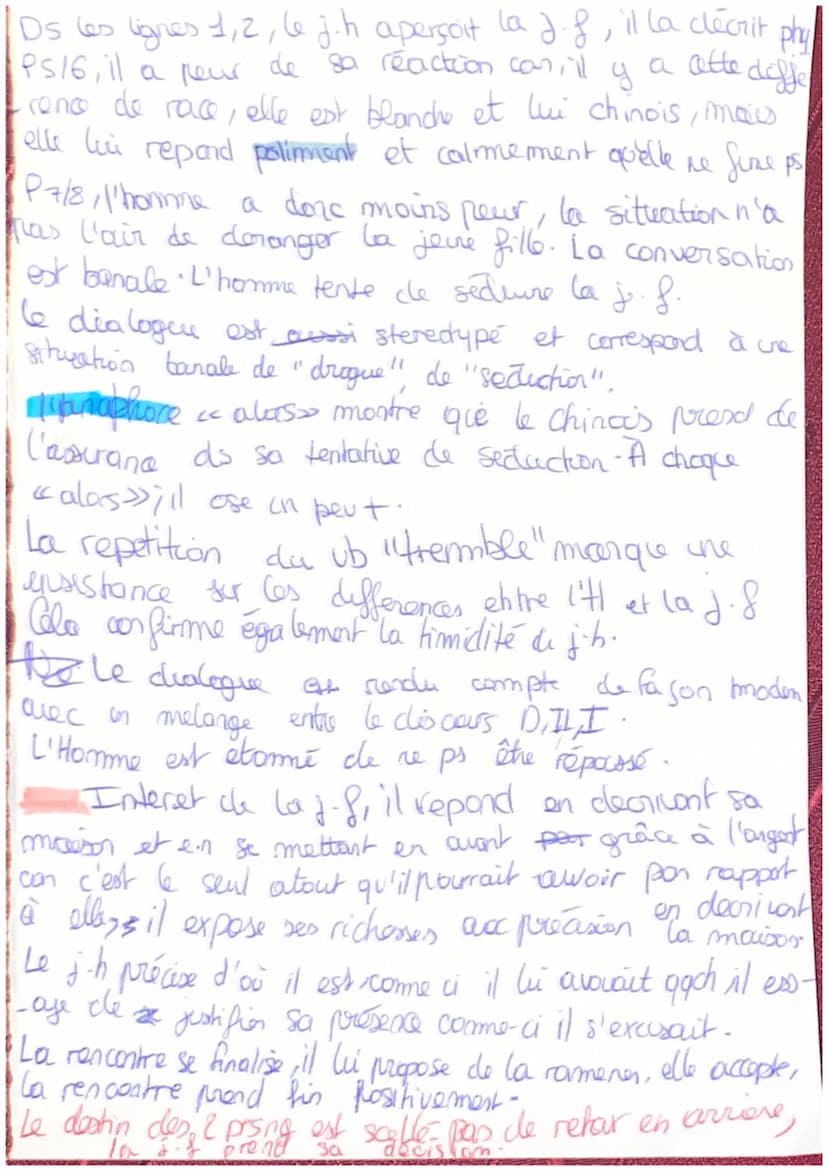 Ds les lignes 1,2, le j.h aperçoit la j.f, il la décrit phy
P516, il a peur de sa réaction car, il y a cette diffe
-rence de race, elle est blanche et lui chinois, mais
elle lui repond poliment et calmement qu'elle ne fume ps
P7/8, l'homme a donc moins peur, la situation n'a
pas l'air de deranger la jeune fille. La conversation
est banale. L'homme tente de séduire la j.f.
le dialogue est aussi stereotypé et correspond à une
situation banale de "drague", de "seduction".
l'anaphore «alors» montre que le chinois prend de
l'assurance ds sa tentative de seduction. A chaque
«alors», il ose un peu +.
La repetition du vb "tremble" marque une
insistance sur les differences entre l'H et la j.f
Cela confirme également la timidité du j.h.
Le dialogue est rendu compte de façon modern
avec un melange entre le discours D, II, I.
L'Homme est etonné de ne ps être repoussé.
Interet de la j.f, il repond en decrivant sa
maison et en se mettant en avant par grâce à l'argent
car c'est le seul atout qu'il pourrait avoir par rapport
à elle, il expose ses richesses avec précision en decrivant
la maison
Le j.h précise d'où il est, comme ci il lui avouait qqch il ess-
-aye de justifier sa présence comme-ci il s'excusait.
La rencontre se finalise, il lui propose de la ramener, elle accepte,
la rencontre prend fin positivement.
Le destin des 2 prsng est scellé pas de retour en arrière,
la j.f prend sa décision.